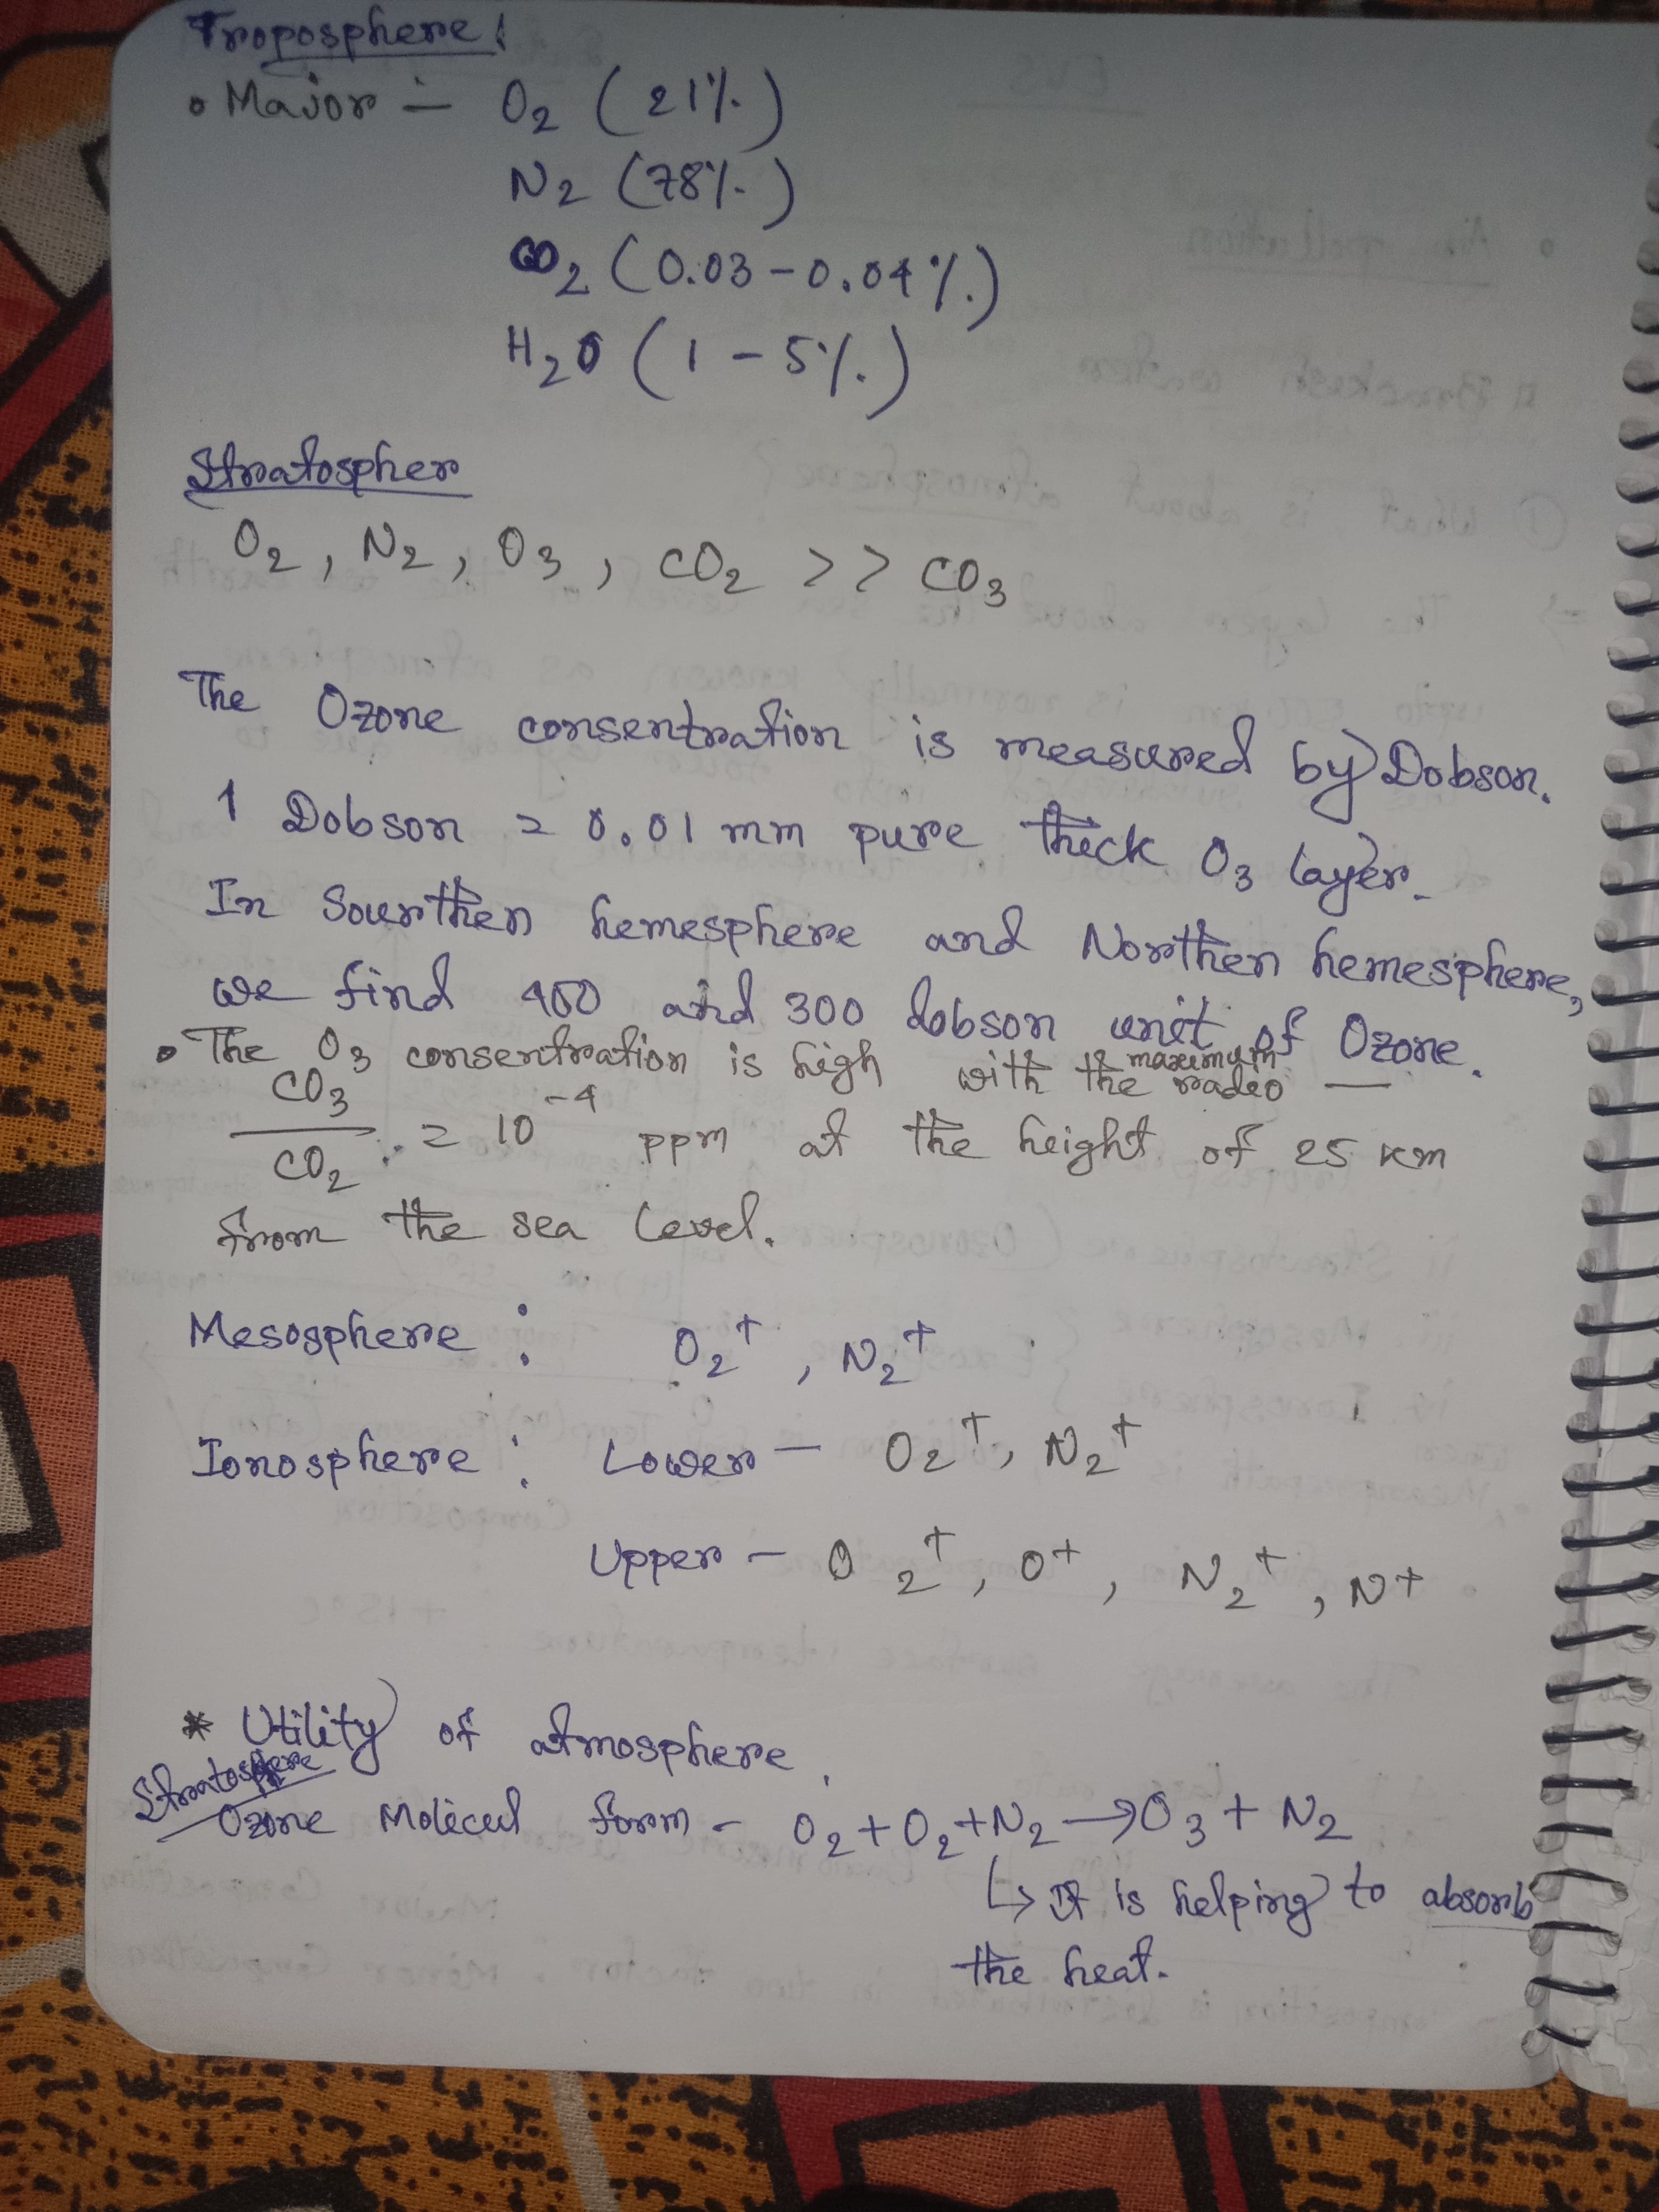 Troposphere:
• Major :- O2 (21%)
N2 (78%)
CO2 (0.03 - 0.04%)
H2O (1 - 5%)
Stratospher
O2, N2, O3, CO2 >> CO3
The Ozone consentration is measured by Dobson.
1 Dobson = 0.01 mm pure thick O3 layer.
In Sourthen hemesphere and Northen hemesphere,
we find 400 and 300 dobson unit of Ozone.
• The O3 consentration is high with the maximum radio —
CO3 / CO2 = 10^-4 ppm at the height of 25 km
from the sea level.
Mesosphere : O2+, N2+
Ionosphere : Lower - O2+, N2+
Upper - O2+, O+, N2+, N+
* Utility of atmosphere.
Stratosphere
Ozone Molecul form - O2+O2+N2→O3+N2
↳ It is helping to absorb
the heat.